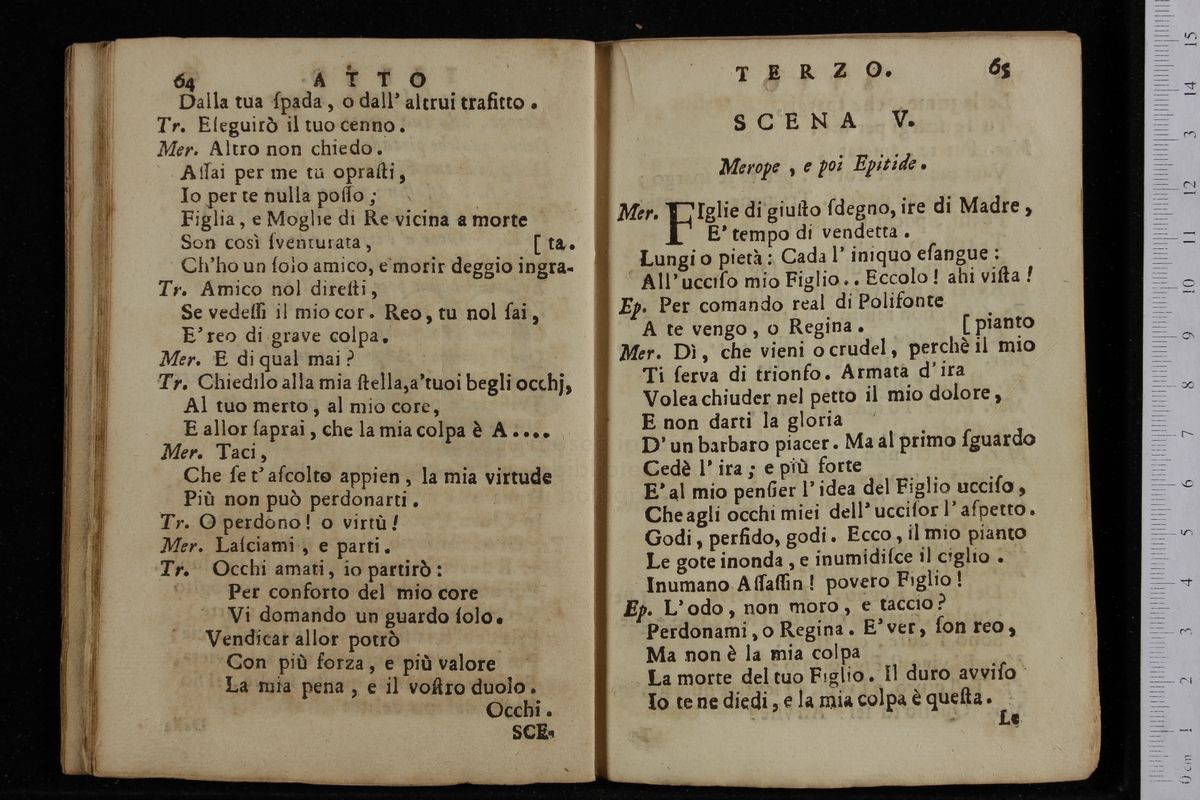 64 ATTO
Dalla tua ſpada, o dall' altrui trafitto.
Tr. Eſeguirò il tuo cenno.
Mer. Altro non chiedo.
Aſſai per me tu opraſti,
Io per te nulla poſſo;
Figlia, e Moglie di Re vicina a morte
Son così ſventurata, [ ta.
Ch'ho un ſolo amico, e morir deggio ingra-
Tr. Amico nol direſti,
Se vedeſſi il mio cor. Reo, tu nol ſai,
E' reo di grave colpa.
Mer. E di qual mai?
Tr. Chiedilo alla mia ſtella, a' tuoi begli occhj,
Al tuo merto, al mio core,
E allor ſaprai, che la mia colpa è A....
Mer. Taci,
Che ſe t' aſcolto appien, la mia virtude
Più non può perdonarti.
Tr. O perdono! o virtù!
Mer. Laſciami, e parti.
Tr. Occhi amati, io partirò:
Per conforto del mio core
Vi domando un guardo ſolo.
Vendicar allor potrò
Con più forza, e più valore
La mia pena, e il voſtro duolo.
Occhi.
SCE-
TERZO. 65
SCENA V.
Merope, e poi Epitide.
Mer. FIglie di giuſto ſdegno, ire di Madre,
E' tempo di vendetta.
Lungi o pietà: Cada l' iniquo eſangue:
All' ucciſo mio Figlio.. Eccolo! ahi viſta!
Ep. Per comando real di Polifonte
A te vengo, o Regina. [ pianto
Mer. Dì, che vieni o crudel, perchè il mio
Ti ſerva di trionfo. Armata d' ira
Volea chiuder nel petto il mio dolore,
E non darti la gloria
D' un barbaro piacer. Ma al primo ſguardo
Cedè l' ira; e più forte
E' al mio penſier l' idea del Figlio ucciſo,
Che agli occhi miei dell' ucciſor l' aſpetto.
Godi, perfido, godi. Ecco, il mio pianto
Le gote inonda, e inumidiſce il ciglio.
Inumano Aſſaſſin! povero Figlio!
Ep. L' odo, non moro, e taccio?
Perdonami, o Regina. E' ver, ſon reo,
Ma non è la mia colpa
La morte del tuo Figlio. Il duro avviſo
Io te ne diedi, e la mia colpa è queſta.
Le
0 cm 1 2 3 4 5 6 7 8 9 10 11 12 13 14 15